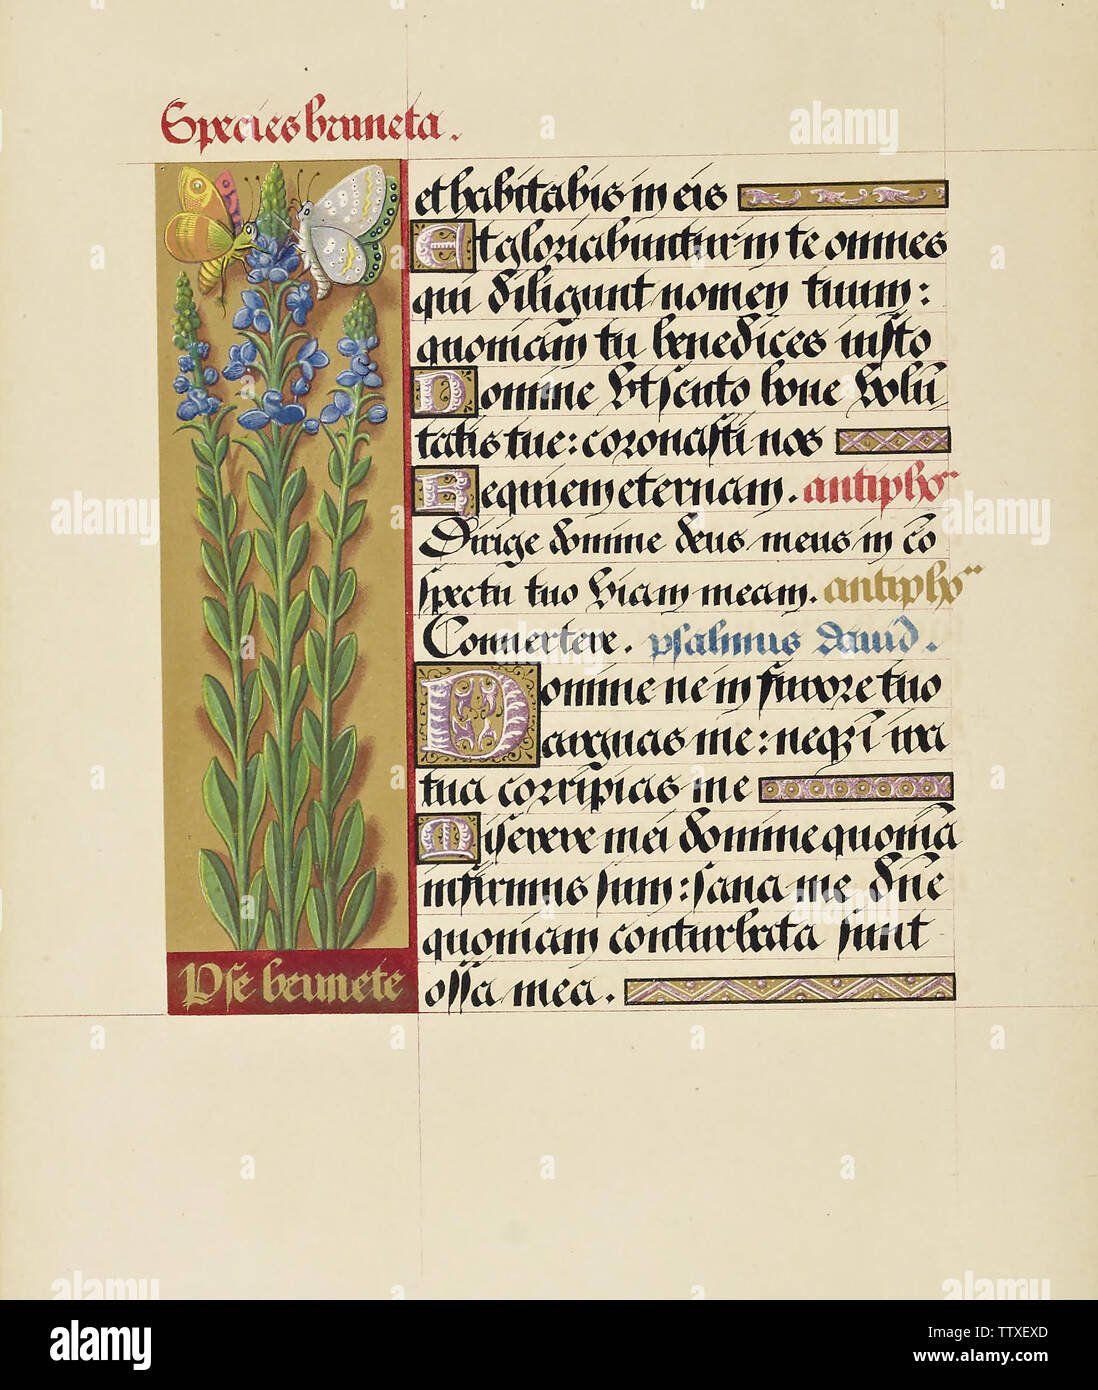 Species bruneta.
et habitabis in eis
Et gloriabuntur in te omnes
qui diligunt nomen tuum:
quoniam tu benedices iusto
Domine vt scuto bone volū-
tatis tue: coronasti nos
Requiem eternam. antipho
Dirige domine deus meus in cō
spectu tuo viam meam. antipho
Conuertere. psalmus dauid.
Domine ne in furore tuo
arguas me: neqȝ ī ira
tua corripias me
Miserere mei domine quoniā
infirmus sum: sana me dn̄e
quoniam conturbata sunt
ossa mea.
Pse beunete
alamy
Image ID: TTXEXD
www.alamy.com